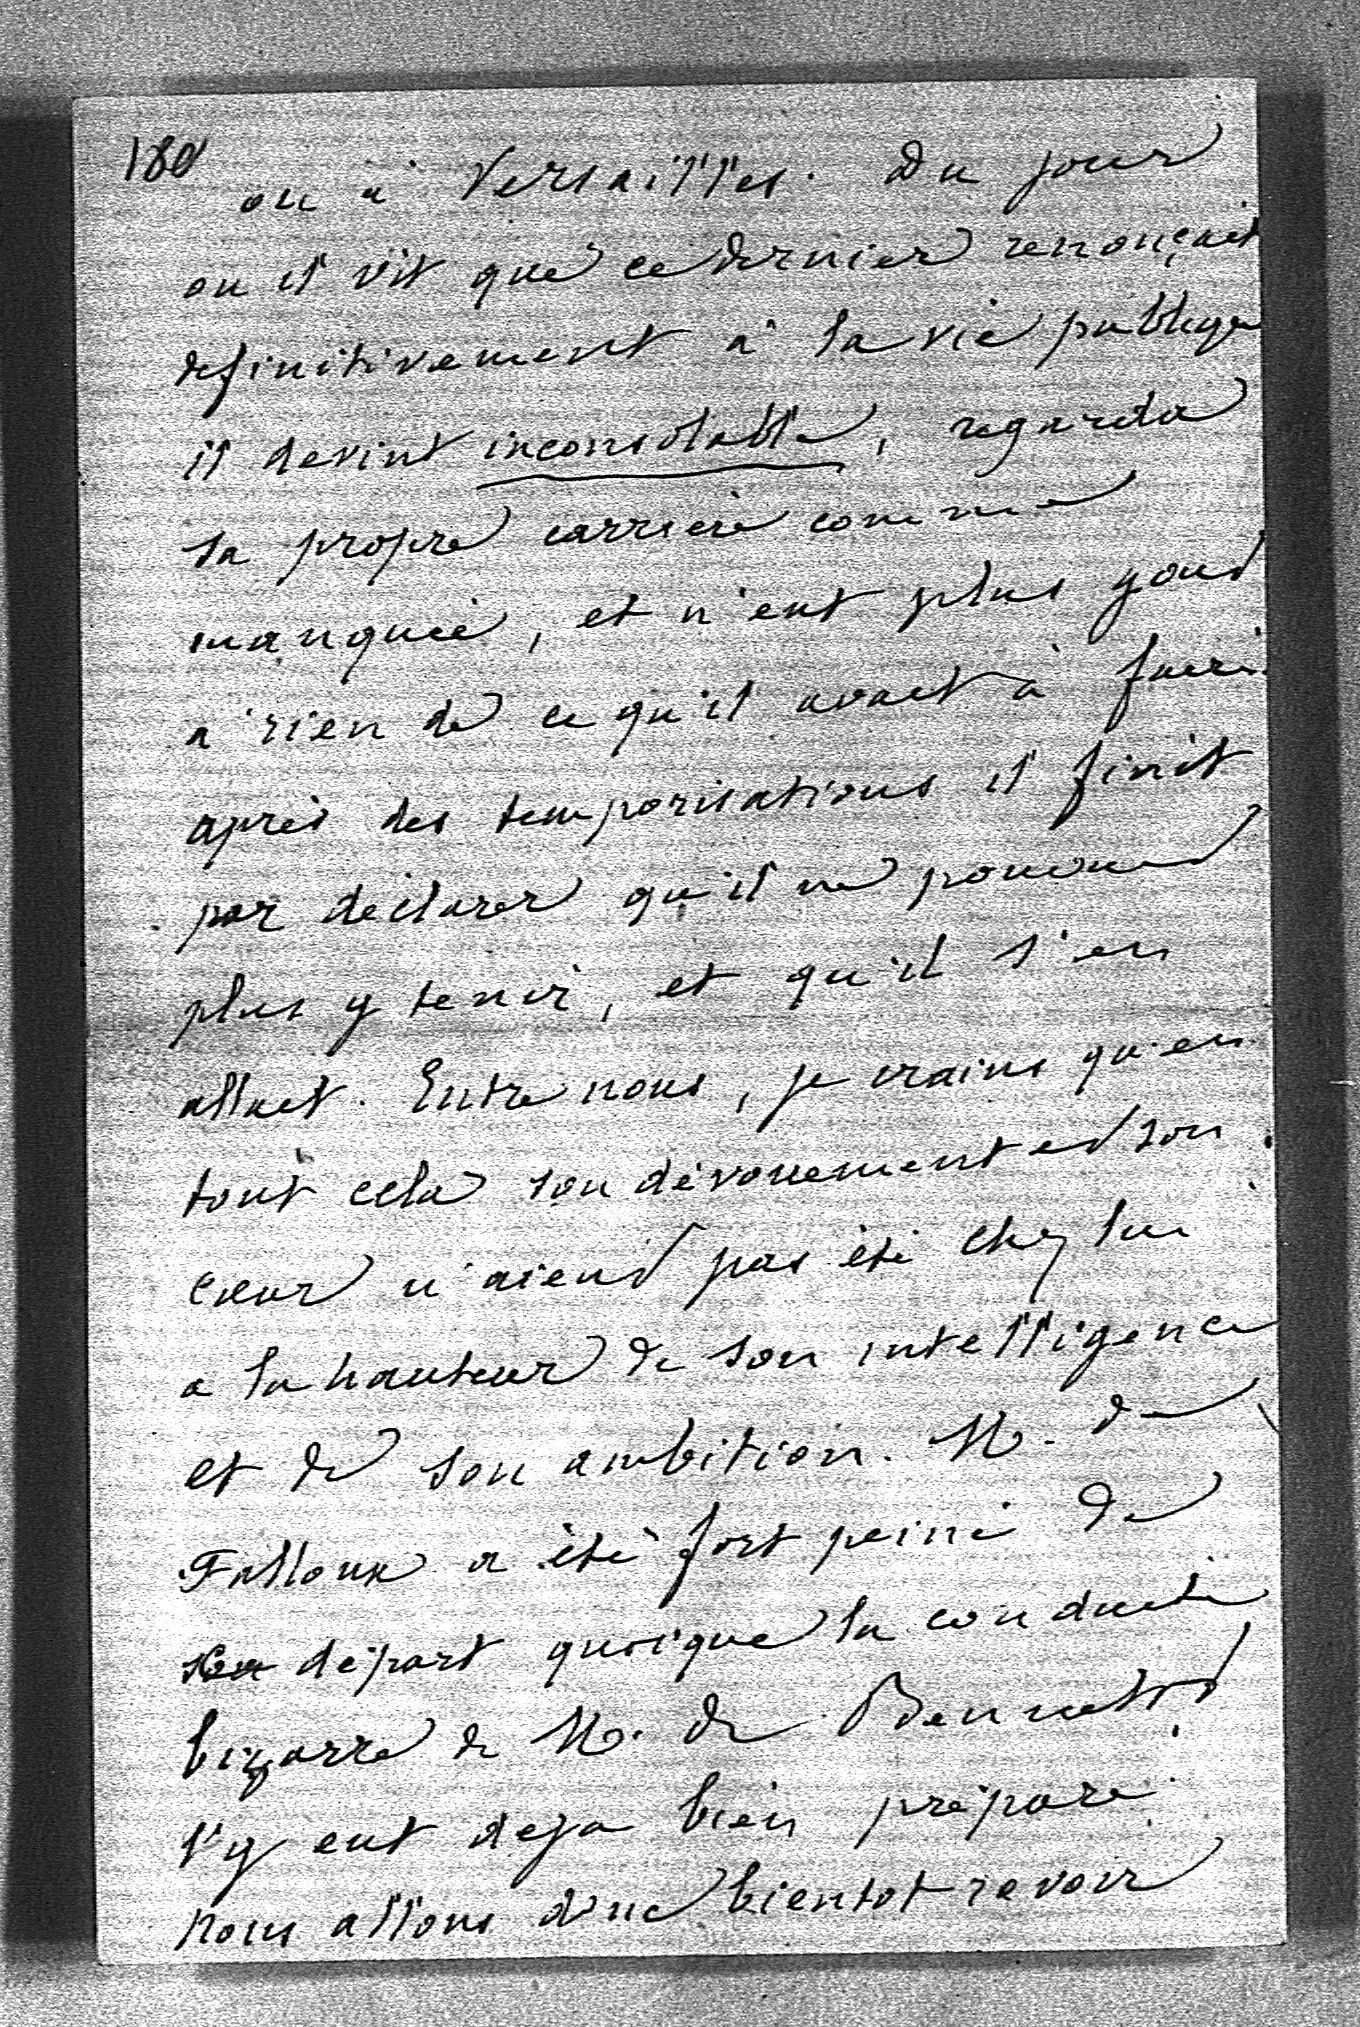 180
ou à Versailles. Du jour
ou il vit que ce dernier renonçait
definitivement à la vie publique
il devint inconsolable, regarda
sa propre carrière comme
manquée, et n'eut plus gout
a rien de ce qu'il avait à faire.
après des temporisations il finit
par déclarer qu'il ne pouvait
plus y tenir, et qu'il s'en
allait. Entre nous, je crains qu'en
tout cela son dévouement et son
cœur n'aient pas été chez lui
a la hauteur de son intelligence
et de son ambition. M. de
Falloux a été fort peiné de
son départ quoique la conduite
bizarre de M. de
l'y eut deja bien préparé.
Nous allons donc bientot revoir